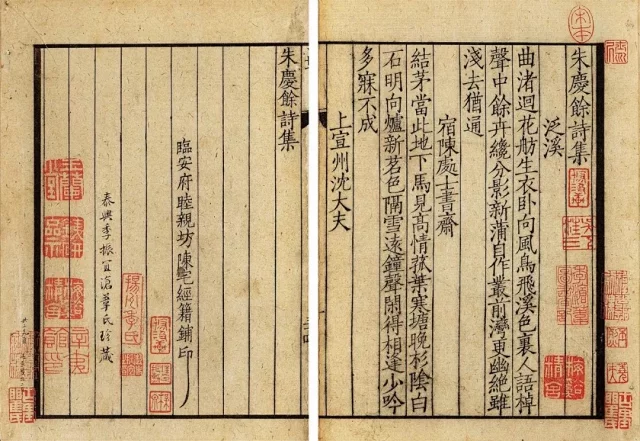 宋本
朱慶餘詩集
泛溪
曲渚迴花舫生衣卧向風鳥飛溪色裏人語棹
聲中餘卉纔分影新蒲自作叢前灣東幽絕雖
淺去猶通
宿陳處士書齋
結茅當此地下馬見高情菰葉寒塘晚杉陰白
石明向爐新茗色隔雪遠鐘聲閑得相逢少吟
多寐不成
上宣州沈大夫
朱慶餘詩集
臨安府睦親坊陳宅經籍鋪印
泰興季振宜滄葦氏珍藏